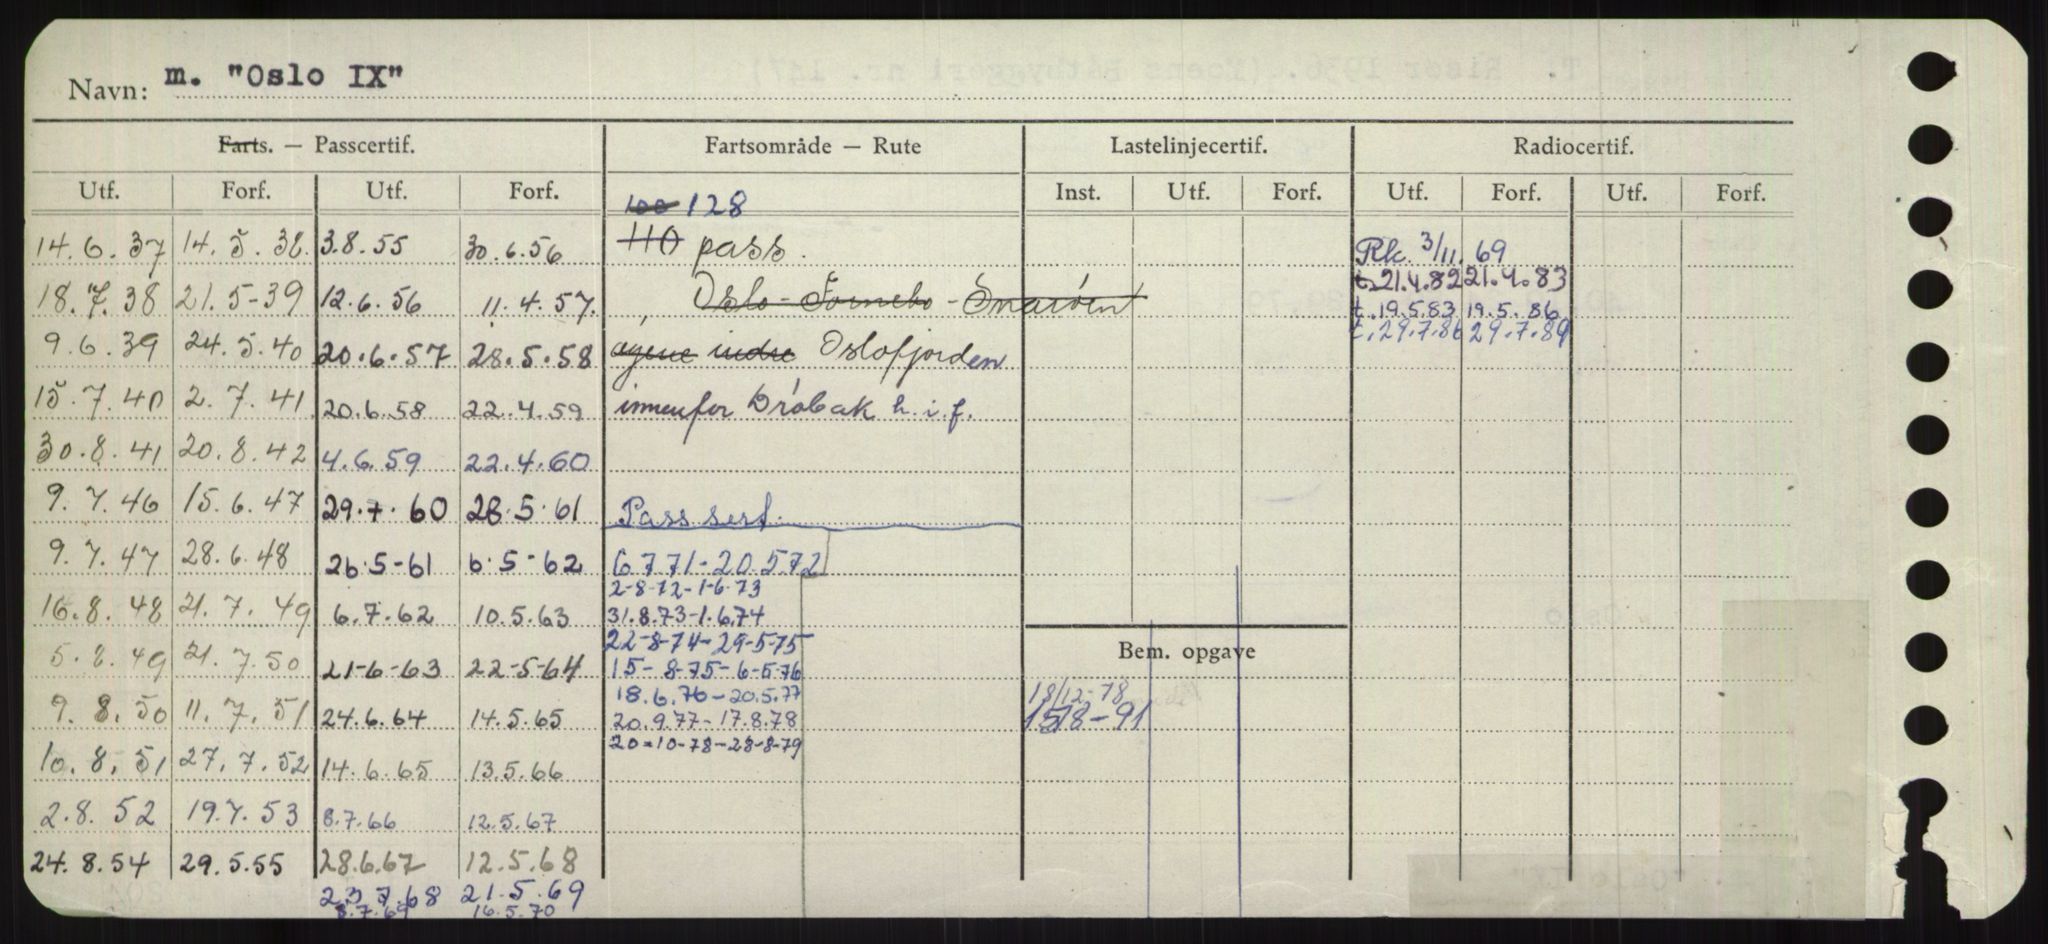 Navn: m. "Oslo IX"
Farts. — Passcertif. Fartsområde — Rute Lastelinjecertif. Radiocertif.
Utf. Forf. Utf. Forf. Inst. Utf. Forf. Utf. Forf. Utf. Forf.
100 128
14.6.37 14.5.38. 3.8.55 30.6.56 110 pass. Rk. 3/11. 69
t. 21.4.82 21.4.83
18.7.38 21.5-39 12.6.56 11.4.57. Oslo-Fornebo - Snarøen t. 19.5.83 19.5.86
t. 29.7.86 29.7.89
9.6.39 24.5.40 20.6.57 28.5.58 indre Oslofjorden
15.7.40 2.7.41. 20.6.58 22.4.59 innenfor Drøbak h.i.f.
30.8.41 20.8.42 4.6.59 22.4.60
9.7.46 15.6.47 29.7.60 28.5.61 Pass sert.
9.7.47 28.6.48 26.5-61 6.5-62 6771-20.572
2-8-72-1-6-73
16.8.48 21.7.49 6.7.62 10.5.63 31.8.73-1.6.74
22-8-74-29-5-75 Bem. opgave
5.8.49 21.7.50 21-6-63 22-5-64 15-8-75-6-5-76
18.6.76-20.5.77 18/12-78
9.8.50 11.7.51 24.6.64 14.5.65 20.9.77-17.8.78 1578-91
20-10-78-28-8-79
10.8.51 27.7.52 14.6.65 13.5.66
2.8.52 19.7.53 8.7.66 12.5.67
24.8.54 29.5.55 28.6.67 12.5.68
23.7.68 21.5.69
8.7.69 16.5.70